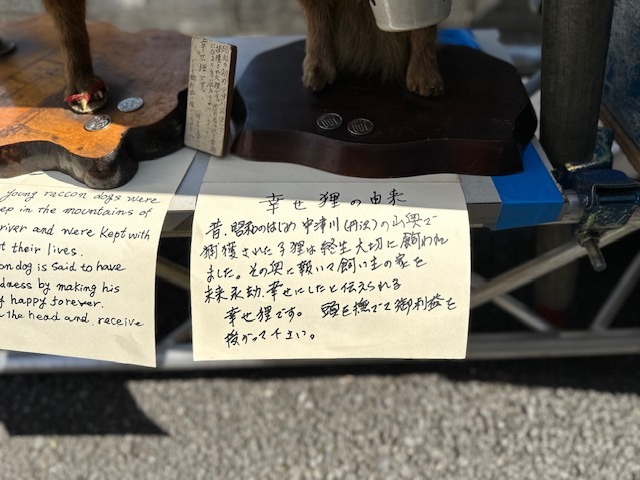 young raccon dogs were
ep in the mountains of
river and were kept with
t their lives.
on dog is said to have
dness by making his
y happy forever.
the head and receive
幸せ狸の由来
昔、昭和のはじめ中津川(丹沢)の山奥で
捕獲された子狸は終生大切に飼われ
ました。その恩に報いて飼い主の家を
未来永劫、幸せにしたと伝えられる
幸せ狸です。 頭を撫でて御利益を
授かって下さい。
幸せ狸です。